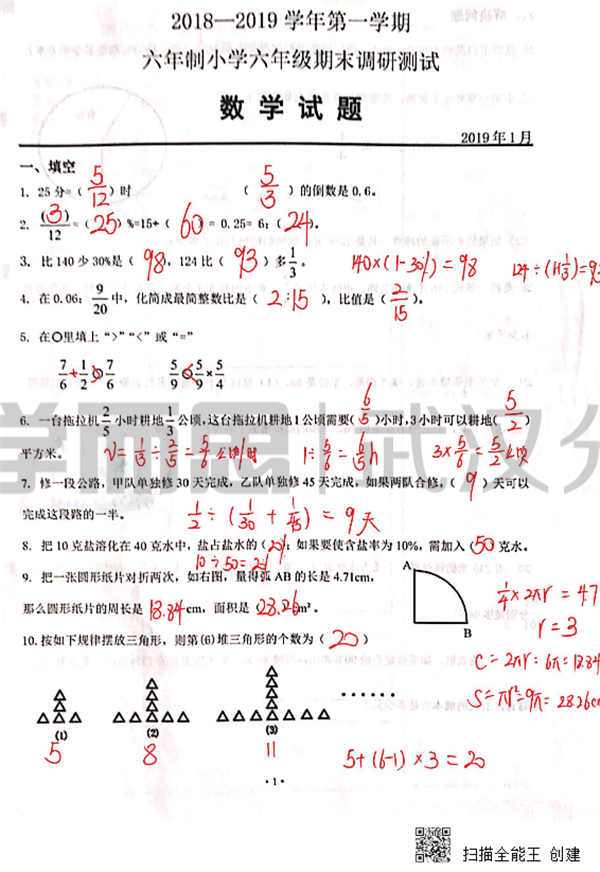 2018—2019 学年第一学期
六年制小学六年级期末调研测试
数 学 试 题
2019 年 1 月
一、填空
1. 25 分=( 5/12 )时 ( 5/3 )的倒数是 0.6。
2. (3)/12 =( 25 )%=15÷( 60 )= 0.25= 6:( 24 )。
3. 比 140 少 30%是( 98 ), 124 比( 93 )多 1/3 。 140×(1-30%)=98 124÷(1+1/3)=93
4. 在 0.06: 9/20 中, 化简成最简整数比是( 2:15 ), 比值是( 2/15 )。
5. 在○里填上“>”“<”或“=”
7/6 + 1/2 > 7/6 5/9 < 5/9 × 5/4
6. 一台拖拉机 2/5 小时耕地 1/3 公顷, 这台拖拉机耕地 1 公顷需要( 6/5 )小时, 3 小时可以耕地( 5/2 )
平方米。 V=1/3÷2/5=5/6公顷/时 1÷5/6=6/5h 3×5/6=5/2公顷
7. 修一段公路, 甲队单独修 30 天完成, 乙队单独修 45 天完成, 如果两队合修, ( 9 )天可以
完成这段路的一半。 1/2÷(1/30+1/45)=9天
8. 把 10 克盐溶化在 40 克水中, 盐占盐水的( 20% ); 如果要使含盐率为 10%, 需加入( 50 )克水。
10÷50=
9. 把一张圆形纸片对折两次, 如右图, 量得弧 AB 的长是 4.71cm,
那么圆形纸片的周长是( 18.84 )cm, 面积是( 28.26 )cm²。
A
B
1/4×2πr=4.7
r=3
C=2πr=6π=18.84
S=πr²=9π=28.26cm
10. 按如下规律摆放三角形, 则第(6)堆三角形的个数为( 20 )
……
(1) (2) (3)
5 8 11 5+(6-1)×3=20
· 1 ·
学而思 武汉分
扫描全能王 创建